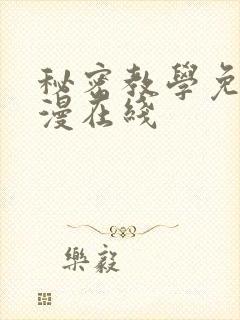 秘密教學免
漫在綫
樂毅